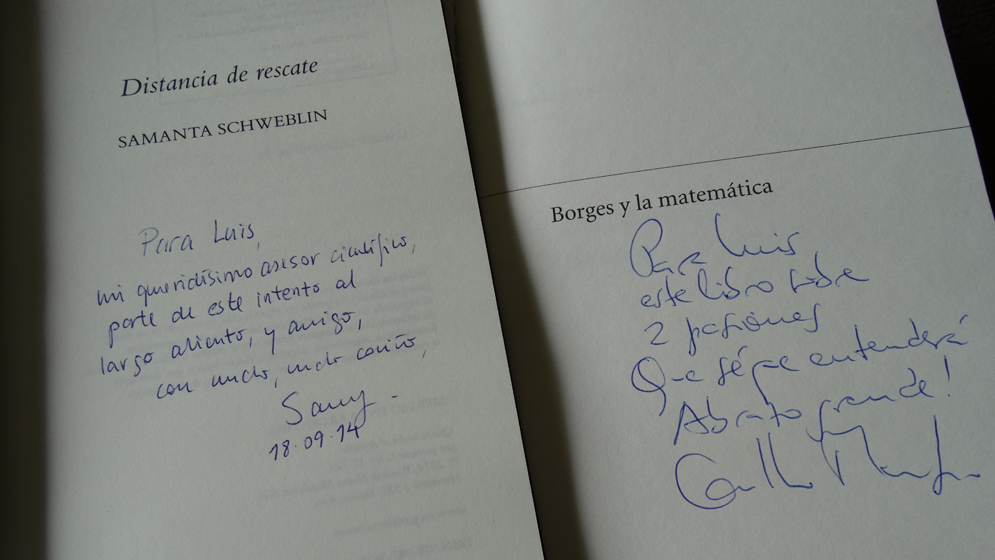 Distancia de rescate
SAMANTA SCHWEBLIN
Para Luis,
mi queridísimo asesor científico,
parte de este intento al
largo aliento, y amigo,
con mucho, mucho cariño,
Samy -
18.09.14
Borges y la matemática
Para Luis
este libro sobre
2 pasiones
Que sé que entenderá
Abrazo grande!